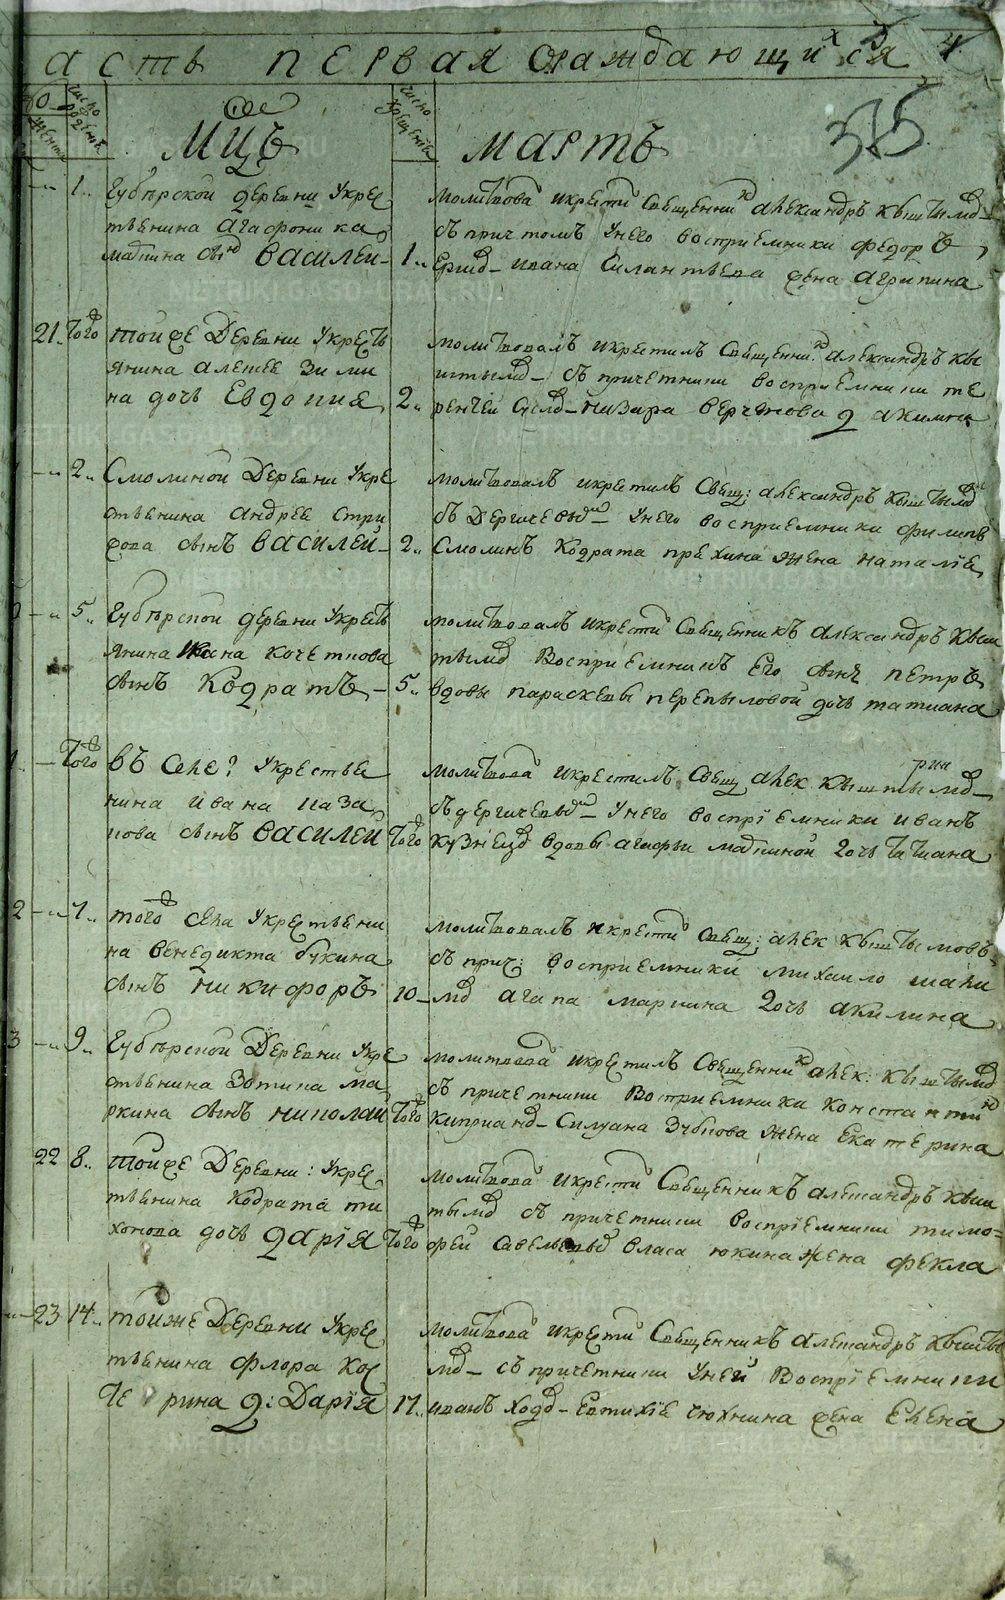 асть первая ѡраждающихся 4
375
число рожденія
мцъ
число крещенія
мартъ
1 Губѣрской деревни Укрес
тьянина агафони ка
сынъ василеи 1
молитвова икрести священник александръ кыштымов
съ причтомъ Унего восприемники федоръ
ивана силантьева жена агрипина
21 того тойже деревни Укресть
янина алеѯее зими
на дочь Евдокия 2
молитвовалъ икрестилъ священник александръ кы
штымов съ причетники восприемники те
рентей назара д акилина
2 Смолиной деревни Укре
стьянина андрее стри
сынъ василеи 2
молитвовалъ икрестилъ свещ: александръ кыштымов
съ Дергачевым Унего восприемники филипъ
Смолинъ Кодрата жена наталие
5 Губѣрской деревни Укресть
янина Ивана кочеткова
сынъ Кодратъ 5
молитвовалъ икрести священникъ александръ кыш
тымов восприемникъ его сынъ петръ
вдовы параскевы перепыловой дочь татиана
того въ селе? Укрестье
нина ивана каза
кова сынъ василей того
молитвова икрестилъ свещ алек кыштымов
съ дергачевым Унего восприемники иванъ
кузнецов вдовы агафьи дочь татиана
2 7 того села Укрестьени
на венедикта букина
сынъ никифоръ 10
молитвовалъ икрести свещ: алек кыштымовъ
съ прич: восприемники михаило
агапа маркина дочь акилина
3 9 Губѣрской деревни Укре
стьенина Зотина ма
ркина сынъ николаи того
молитвова икрестилъ священник алек: кыштымов
съ причетники восприемники констанстин
киприанов Силуана Зубкова жена екатерина
22 8 тойже деревни: Укрес
тьянина кодрата ти
хонова дочь дарїя того
молитвова икрести Священникъ алеѯандръ кыш
тымов съ причетники воспрїемники тимо-
фей савельевъ власа юкина жена фекла
23 14 тойже Деревни Укрес
тьянина флора кос
те рина д: Дарїя 17
молитвова икрести Священникъ алеѯандръ кышты
мов съ причетники Уней воспрїемники
иванъ Ходов Евтихїе чюхнина жена елена